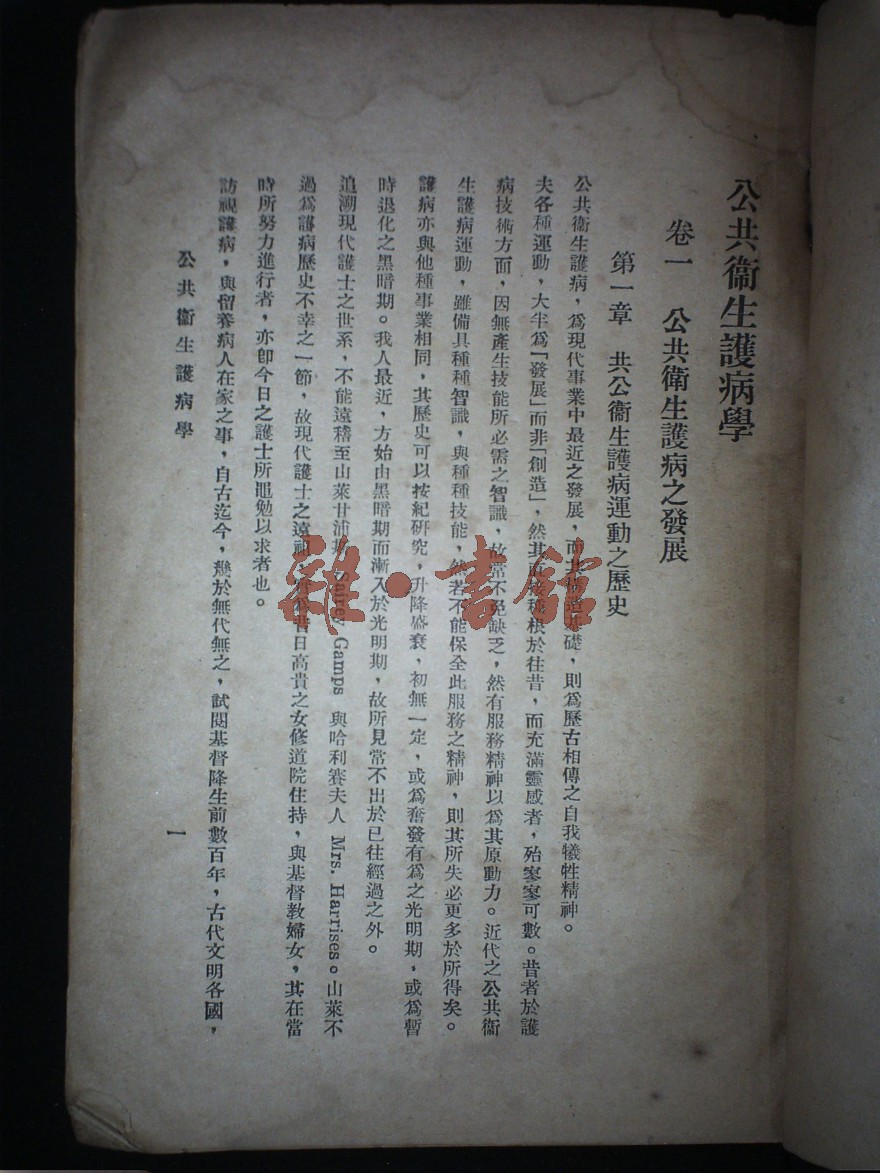 公共衞生護病學
卷一　公共衞生護病之發展
第一章　共公衞生護病運動之歷史
公共衞生護病，爲現代事業中最近之發展，而其構造基礎，則爲歷古相傳之自我犧牲精神。
夫各種運動，大半爲「發展」而非「創造」，然其直接種根於往昔，而充滿靈感者，殆寥寥可數。昔者於護
病技術方面，因無產生技能所必需之智識，故常不免缺乏，然有服務精神以爲其原動力。近代之公共衞
生護病運動，雖備具種種智識，與種種技能，然若不能保全此服務之精神，則其所失必更多於所得矣。
護病亦與他種事業相同，其歷史可以按紀研究，升降盛衰，初無一定，或爲奮發有爲之光明期，或爲暫
時退化之黑暗期。我人最近，方始由黑暗期而漸入於光明期，故所見常不出於已往經過之外。
追溯現代護士之世系，不能遠稽至山萊甘浦斯 Sairey Gamps 與哈利賽夫人 Mrs. Harrises。山萊不
過爲護病歷史不幸之一節，故現代護士之遠祖，爲昔日高貴之女修道院住持，與基督教婦女，其在當
時所努力進行者，亦卽今日之護士所黽勉以求者也。
訪視護病，與留養病人在家之事，自古迄今，幾於無代無之，試閱基督降生前數百年，古代文明各國，
公共衞生護病學
一
雜·書館